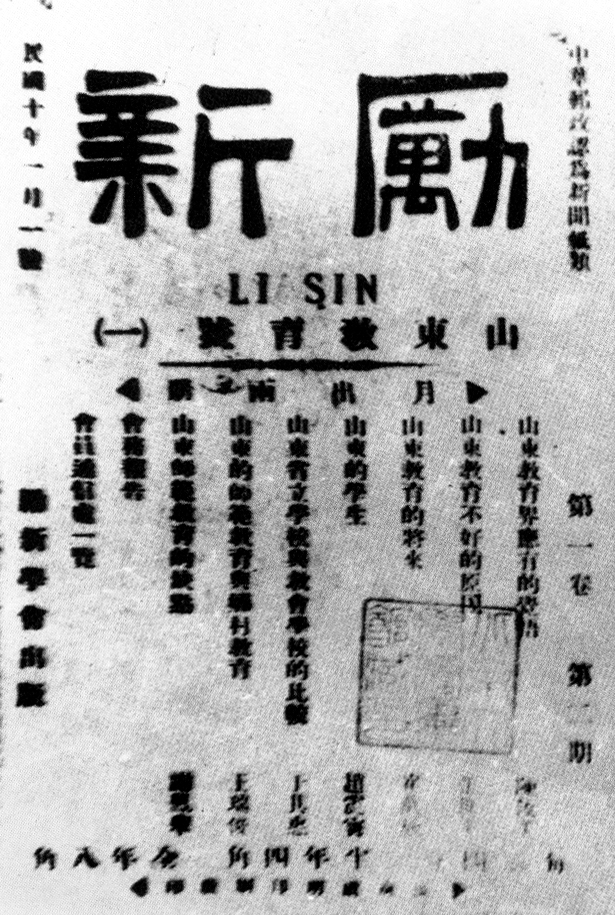 中華郵政認為新聞紙類
勵新
LI SIN
山東教育號(一)
月出兩期
第一卷 第二期
山東教育界應有的覺悟
山東教育不好的原因
山東教育的將來
山東的學生
山東省立學校與教會學校的比較
山東的師範教育與鄉村教育
山東師範教育的缺點
會務報告
會員通信處一覽
王瑞俊
民國十年一月一號
勵新學會出版
半年四角 全年八角